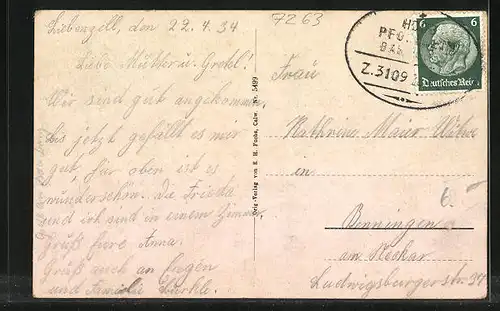 Liebenzell, den 22.4.34
7263
Liebe Mutter u. Gretl!
Wir sind gut angekommen,
bis jetzt gefällt es mir
gut, hier oben ist es
wunderschön. Die Frieda
und ich sind in einem Zimmer.
Gruß Eure Anna.
Grüß auch an Eugen
und Familie
Orig.-Verlag von E. H. Fuchs, Calw. Nr. 5499
Z.3109
6 6
Deutsches Reich
Frau
Kathrine Maier Witwe
in
Benningen
am Neckar
Ludwigsburgerstr. 34